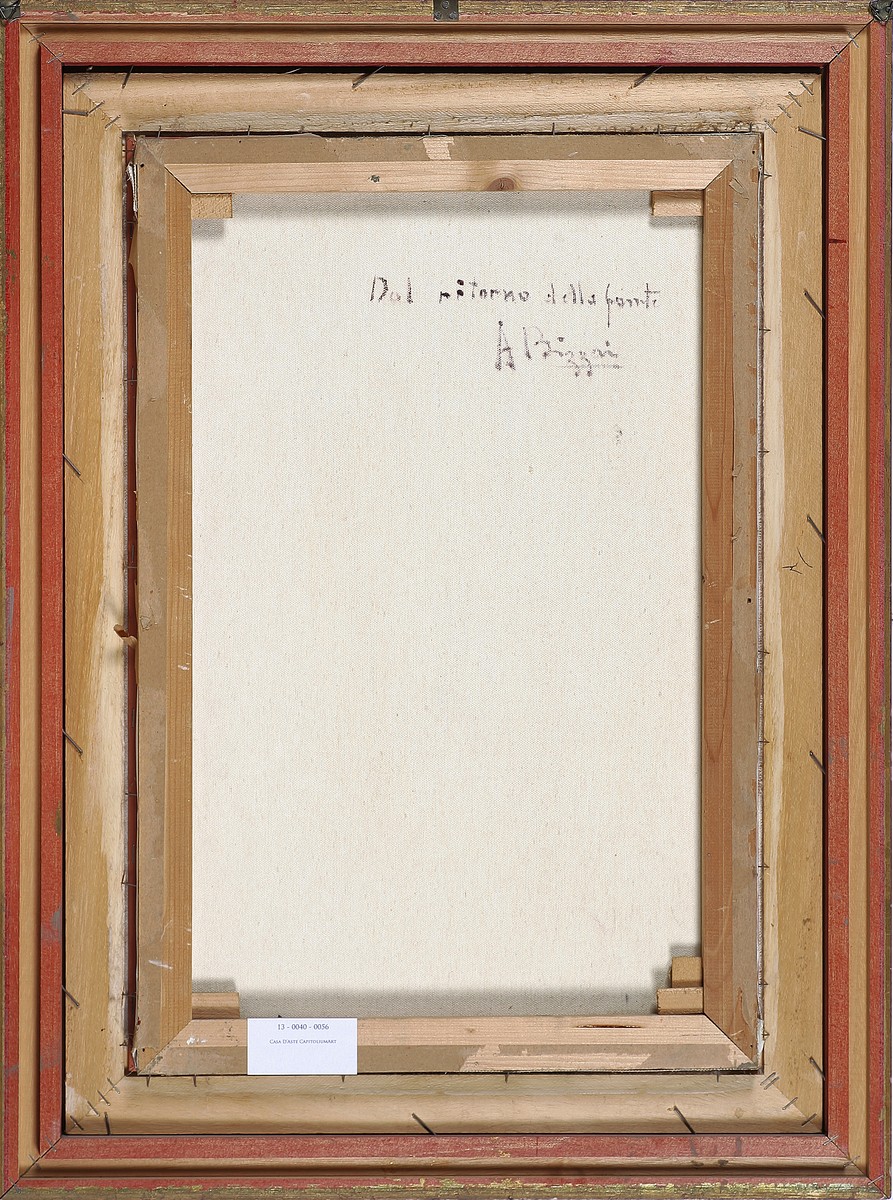 Dal ritorno della fonte
A Bizzai
13 - 0040 - 0056
Casa D'Aste Capitoliumart